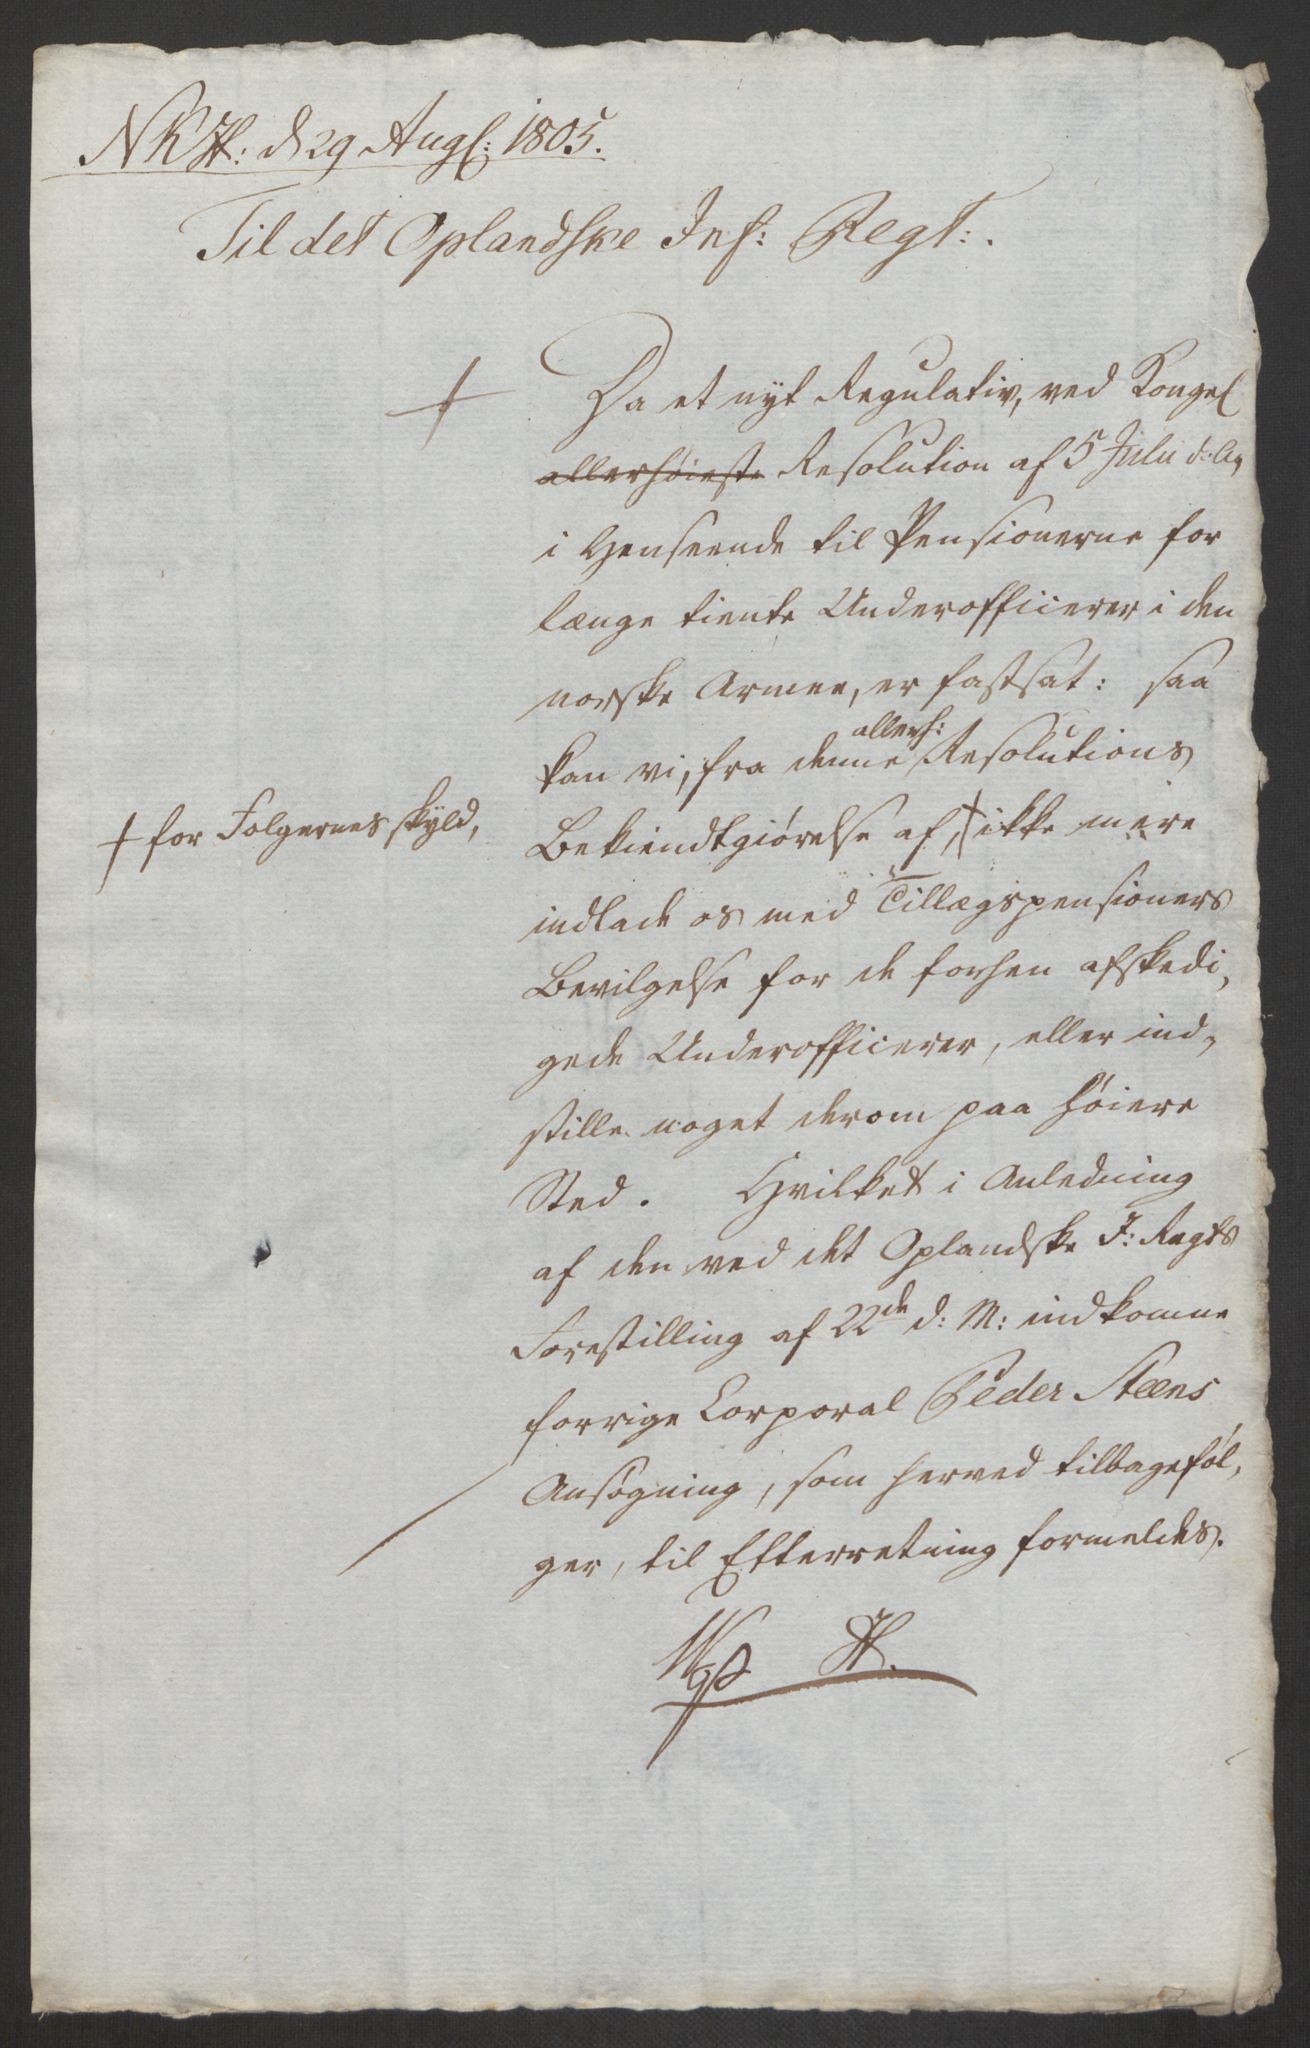 d 29 Aug: 1805.
Til det Oplandske Inf: Regt:.
Da et nyt Regulativ, ved Kongel
allerhøieste Resolution af 5 Julii d: A,
i Henseende til Pensionerne for
længe tiente Underofficerer i den
norske Armee, er fastsat: saa
allerh:
kan vi, fra denne Resolutions
† for Følgernes skyld,
Bekiendtgiørelse af, † ikke mere
indlade os med Tillægspensioners
Bevilgelse for de forhen afskedi,
gede Underofficerer, eller ind,
stille noget derom paa høiere
Sted. Hvilket i Anledning
af den ved det Oplandske I: Regts
Forestilling af 22de d: M: indkomne
forrige Corporal Peder Steens
Ansøgning, som herved tilbageføl,
ger, til Efterretning formeldes.